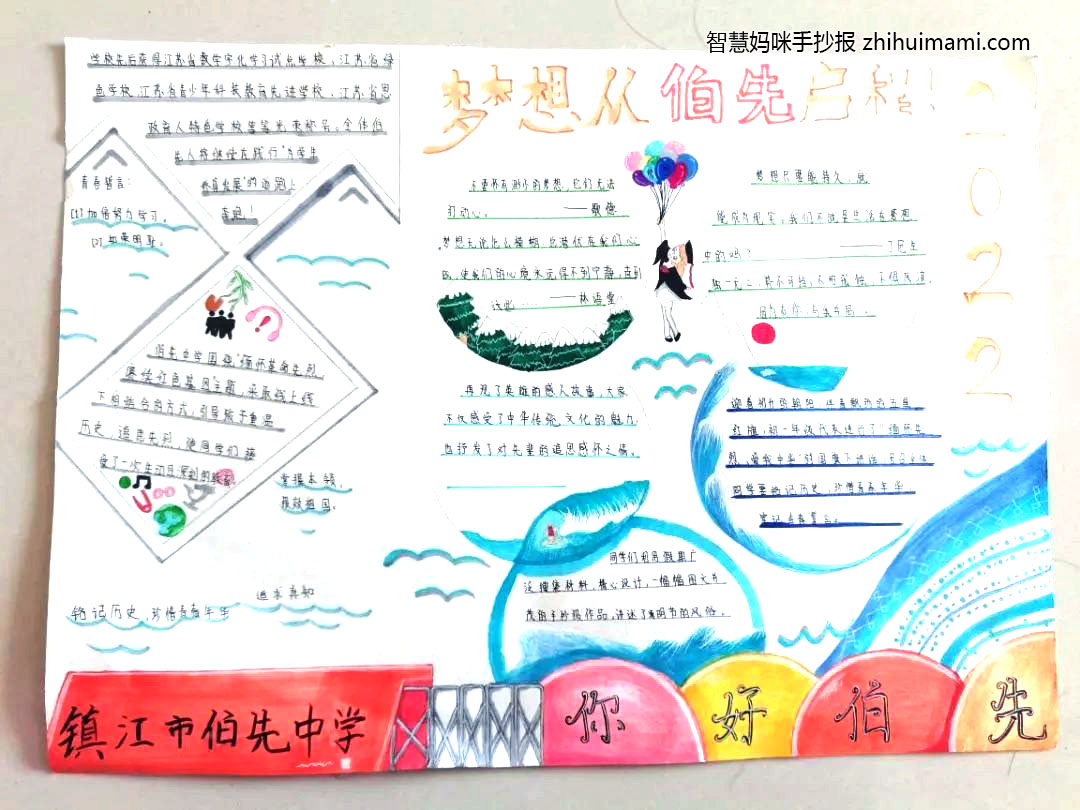 智慧妈咪手抄报 zhihuimami.com
梦想从伯先启程！
2022
学校先后获得江苏省数字文化学习试点学校、江苏省绿
色学校、江苏省青少年科技教育先进学校、江苏省思
政育人特色学校等等光荣称号。全体伯
先人将继续在践行“为学生
发展”的道路上
奔跑！
青春誓言：
[1]加倍努力学习。
[2]
不要怀有渺小的梦想，它们无法
打动心。——歌德
梦想无论怎么模糊，总潜伏在我们心
底，使我们的心境永远得不到宁静，直到
这些……——林语堂
梦想只要能持久，就
能成为现实，我们不就是生活在梦想
中的吗？——丁尼生
独一无二，
伯先中学围绕“缅怀革命先烈，
赓续红色基因”主题，采取线上线
下相结合的方式，引导孩子重温
历史，追思先烈，
受了一次生动且深刻的教育。
掌握本领，
报效祖国。
再现了英雄的感人故事，大家
不仅感受了中华传统文化的魅力，
也抒发了对先辈的追思感怀之情。
迎着初升的朝阳，伴着飘扬的五星
红旗，初一年级代表进行了“缅怀先
烈，爱我中华”的国旗下讲话，
同学要铭记历史，珍惜青春年华
同学们利用假期广
泛搜集材料，精心设计，一幅幅图文并
茂的手抄报作品，讲述了清明节的风俗。
追本真知
铭记历史，珍惜青春年华
镇江市伯先中学
你好伯先